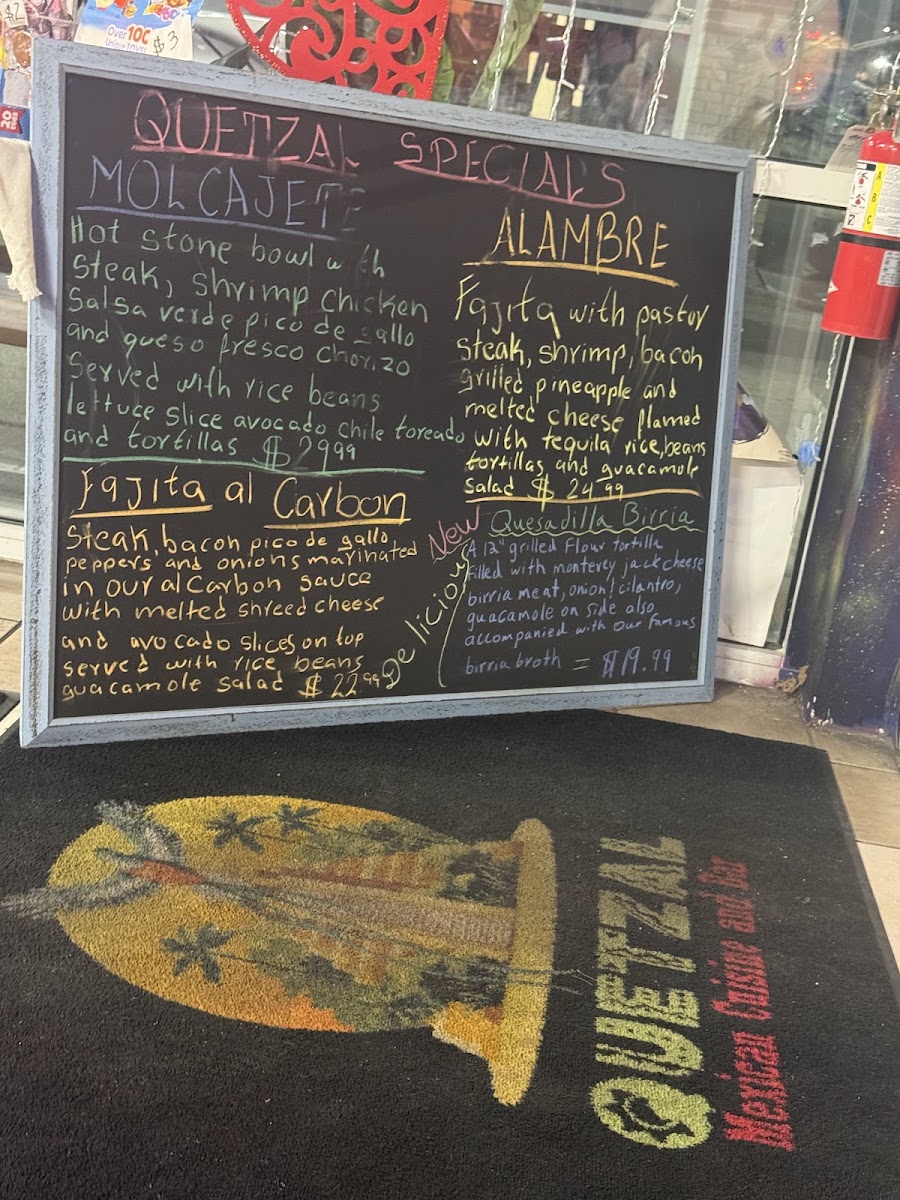 $2
Over 100
$3
QUETZAL SPECIALS
MOLCAJETE
Hot stone bowl with
Steak, shrimp chicken
Salsa verde pico de gallo
and queso fresco chorizo
Served with rice beans
lettuce slice avocado chile toreado
and tortillas $ 29 99
Fajita al Carbon
Steak, bacon pico de gallo
peppers and onions marinated
in our al Carbon sauce
with melted shreed cheese
and avocado slices on top
served with rice beans
guacamole salad $ 22.99
ALAMBRE
Fajita with pastor
steak, shrimp, bacon
grilled pineapple and
melted cheese flamed
with tequila rice, beans
tortillas and guacamole
Salad $ 24.99
New
Delicious
Quesadilla Birria
A 12" grilled Flour tortilla
filled with monterey jack cheese
birria meat, onion! cilantro,
guacamole on side also
accompanied with our famous
birria broth = $19.99
A
B
C
QUETZAL
Mexican Cuisine and Bar